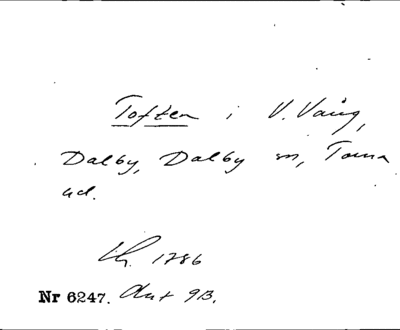 Toften i V. Vång,
Dalby, Dalby sn, Torna
hd.
Lh. 1786
Nr 6247. Akt 9B.